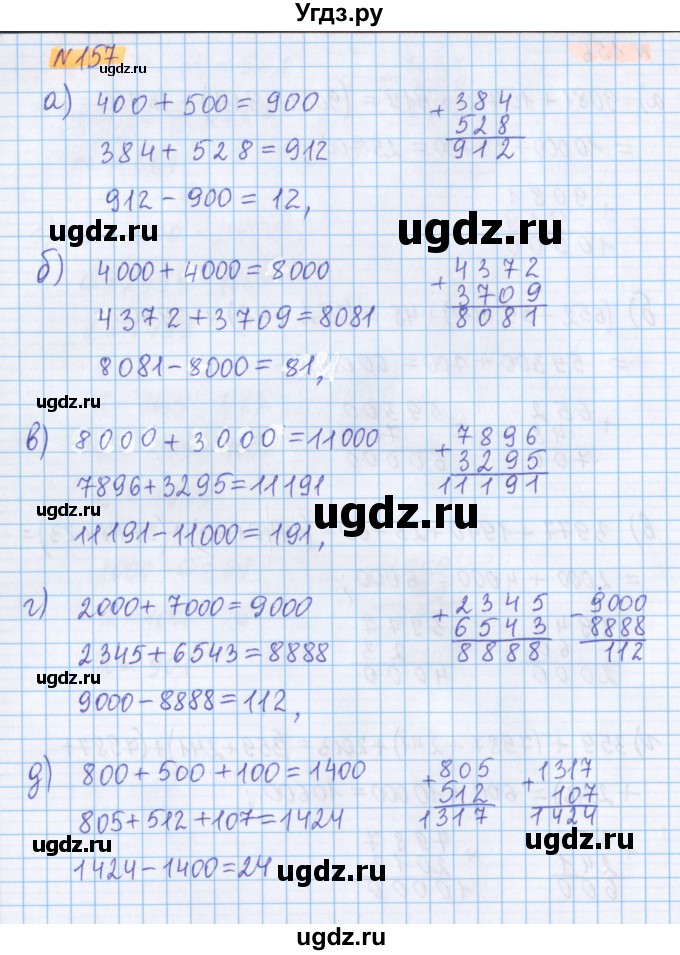 Угдз.ру
N 157
ugdz.ru
а) 400 + 500 = 900
384 + 528 = 912
912 - 900 = 12,
+ 384
528
912
ugdz.ru
ugdz.ru
б) 4000 + 4000 = 8000
4372 + 3709 = 8081
8081 - 8000 = 81,
+ 4372
3709
8081
ugdz.ru
ugdz.ru
в) 8000 + 3000 = 11000
7896 + 3295 = 11191
11191 - 11000 = 191,
+ 7896
3295
11191
ugdz.ru
ugdz.ru
г) 2000 + 7000 = 9000
2345 + 6543 = 8888
9000 - 8888 = 112,
+ 2345
6543
8888
- 9000
8888
112
ugdz.ru
ugdz.ru
д) 800 + 500 + 100 = 1400
805 + 512 + 107 = 1424
1424 - 1400 = 24
+ 805
512
1317
+ 1317
107
1424
ugdz.ru
ugdz.ru
ugdz.ru
ugdz.ru